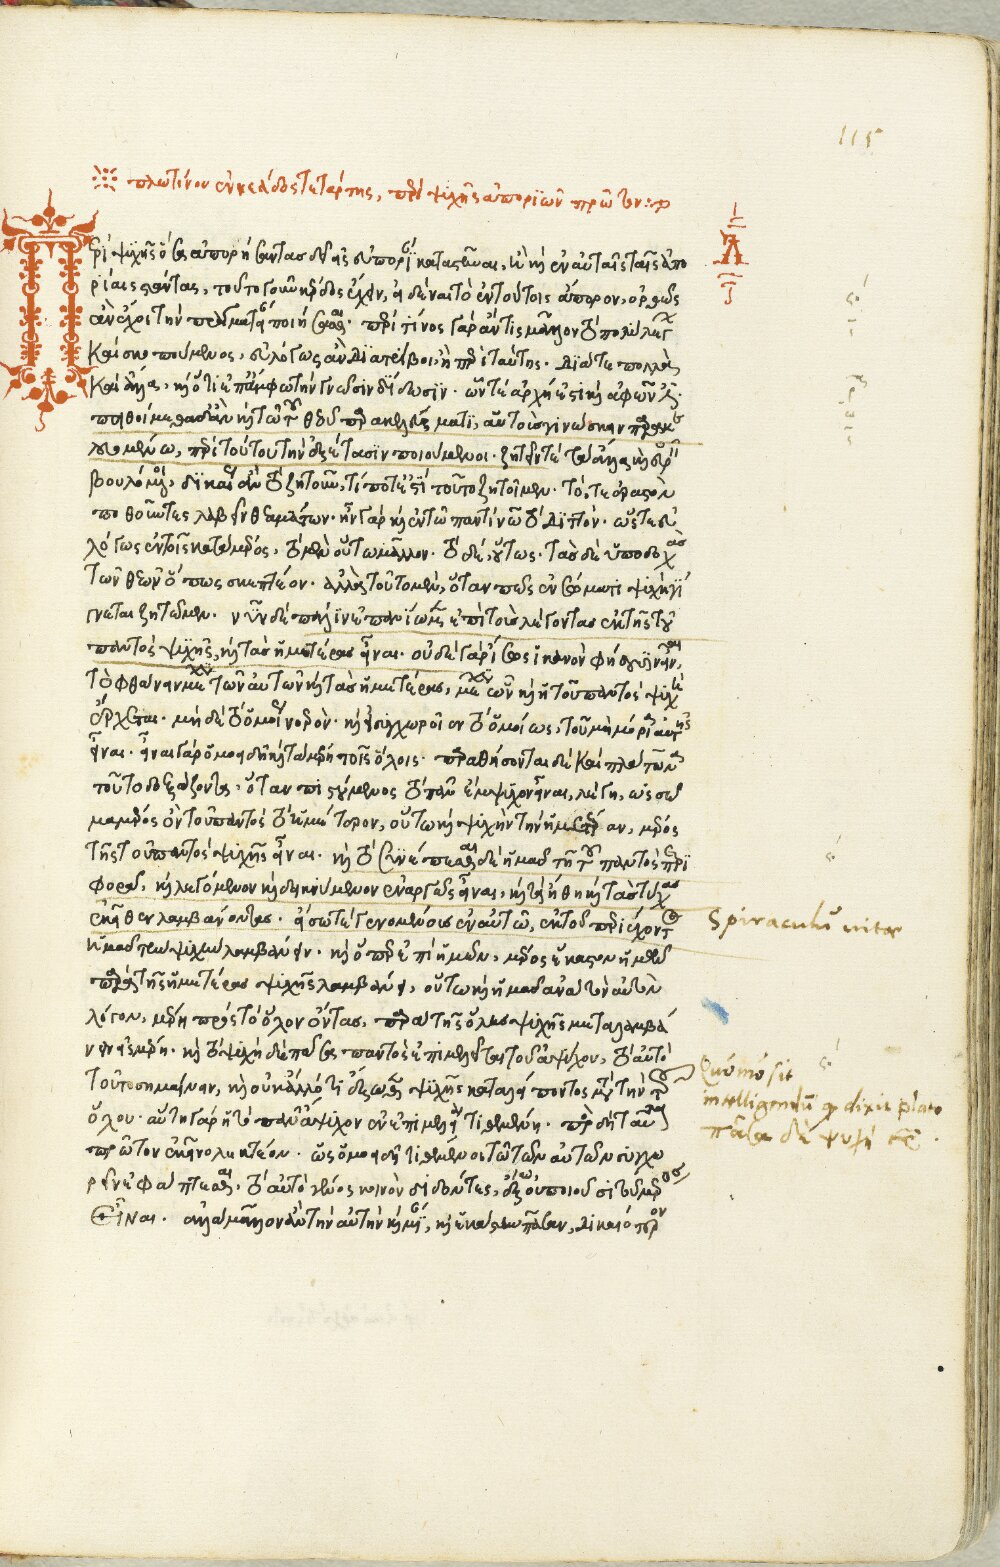 115
πλωτίνου ἐννεάδος τετάρτης, περὶ ψυχῆς ἀποριῶν πρῶτον :
Περὶ ψυχῆς ὅσα ἀπορήσαντας δεῖ εἰς εὐπορίαν καταστῆναι, ἢ καὶ ἐν αὐταῖς ταῖς ἀπο
ρίαις στάντας, τοῦτο γοῦν κέρδος ἔχειν, εἰδέναι τὸ ἐν τούτοις ἄπορον, ὀρθῶς
ἂν ἔχοι τὴν πραγματείαν ποιήσασθαι. περὶ τίνος γὰρ ἄν τις μᾶλλον τὸ πολὺ λέγειν
καὶ σκοπούμενος, εὐλόγως ἂν διατρίβοι, ἢ περὶ ταύτης. διά τε πολλὰ
καὶ ἄλλα, καὶ ὅτι ἐπ' ἄμφω τὴν γνῶσιν δίδωσιν. ὧν τε ἀρχή ἐστι καὶ ἀφ' ὧν ἐστι.
πειθοίμεθα δ' ἂν καὶ τῷ τοῦ θεοῦ παρακελεύσματι, αὑτοὺς γινώσκειν παρακε
λευομένῳ, περὶ τούτου τὴν ἐξέτασιν ποιούμενοι. ζητεῖν τε τὰ ἄλλα καὶ εὑρεῖν
βουλόμενοι, δικαίως ἂν τὸ ζητοῦν, τί ποτ' ἐστὶ τοῦτο ζητοῖμεν. τό, τε ἐραστὸν
ποθοῦντες λαβεῖν θεαμάτων. ἦν γὰρ καὶ ἐν τῷ παντὶ νῷ τὸ διττόν. ὥστε εὐ
λόγως ἐν τοῖς κατὰ μέρος, τὸ μὲν οὕτω μᾶλλον. τὸ δὲ, οὕτως. τὰς δὲ ὑποδοχὰς
τῶν θεῶν ὅπως σκεπτέον. ἀλλὰ τοῦτο μὲν, ὅταν πῶς ἐν σώματι ψυχὴ γί
γνεται ζητῶμεν. νῦν δὲ πάλιν ἐπανίωμεν ἐπὶ τοὺς λέγοντας ἐκ τῆς τοῦ
παντὸς ψυχῆς, καὶ τὰς ἡμετέρας εἶναι. οὐδὲ γὰρ ἴσως ἱκανὸν φήσειν εἶναι,
τὸ φθάνειν μέχρι τῶν αὐτῶν καὶ τὰς ἡμετέρας, μέχρι ὧν καὶ ἡ τοῦ παντὸς ψυχὴ
ἔρχεται. μηδὲ τὸ ὁμοίως νοερόν. καὶ εἰ συγχωροῖεν τὸ ὁμοίως, τοῦ μὴ μόρια αὐτῆς
εἶναι. εἶναι γὰρ ὁμοειδῆ καὶ τὰ μέρη τοῖς ὅλοις. παραθήσονται δὲ καὶ πλάτωνα
τοῦτο δοξάζοντα, ὅταν πιστούμενος τὸ πᾶν ἔμψυχον εἶναι, λέγῃ, ὡς σῶ
μα μέρος ὂν τοῦ παντὸς τὸ ἡμέτερον, οὕτω καὶ ψυχὴν τὴν ἡμετέραν, μέρος
τῆς τοῦ παντὸς ψυχῆς εἶναι. καὶ τὸ συνέπεσθαι δὲ ἡμᾶς τῇ τοῦ παντὸς περι
φορᾷ, καὶ λεγόμενον καὶ δεικνύμενον ἐναργῶς εἶναι, καὶ τὰ ἤθη καὶ τὰς τύχας
ἐκεῖθεν λαμβάνοντας. εἴσω τε γενομένους ἐν αὐτῷ, ἐκ τοῦ περιέχοντος
ἡμᾶς τὴν ψυχὴν λαμβάνειν. καὶ ὅπερ ἐπὶ ἡμῶν, μέρος ἕκαστον ἡμῶν
παρὰ τῆς ἡμετέρας ψυχῆς λαμβάνει, οὕτω καὶ ἡμᾶς ἀνὰ τὸν αὐτὸν
λόγον, μέρη πρὸς τὸ ὅλον ὄντας, παρὰ τῆς ὅλης ψυχῆς μεταλαμβά
νειν ὡς μέρη. καὶ τὸ ψυχὴ δὲ πᾶσα παντὸς ἐπιμελεῖται τοῦ ἀψύχου, τὸ αὐτὸ
τοῦτο σημαίνειν, καὶ οὐκ ἄλλό τι ἔξωθεν ψυχῆς καταλείποντος μετὰ τὴν τοῦ
ὅλου. αὕτη γὰρ ἡ τὸ πᾶν ἄψυχον ἐν ἐπιμελείᾳ τιθεμένη. πρὸς δὴ ταῦτα
πρῶτον ἐκεῖνο λεκτέον. ὡς ὁμοειδῆ τιθέμενοι τῷ τῶν αὐτῶν συγχω
ρεῖν ἐφάπτεσθαι. τὸ αὐτὸ γένος κοινὸν διδόντες, ἔξω ποιοῦσι τοῦ μέρος
εἶναι. ἀλλὰ μᾶλλον ἂν τὴν αὐτὴν καὶ μίαν, καὶ ἑκάστην πᾶσαν, δικαιότερον
Spiraculũ vitæ
Quomo sit
intelligendũ q dixit plato
πᾶσα δὲ ψυχὴ &c.